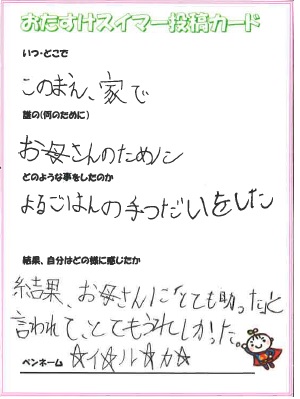 おたすけスイマー投稿カード
いつ・どこで
このまえ、家で
誰の(何のために)
お母さんのために
どのような事をしたのか
よるごはんの手つだいをした
結果、自分はどの様に感じたか
結果、お母さんに「とても助った」と
言われて、とてもうれしかった。
ペンネーム ☆イ☆ル☆カ☆